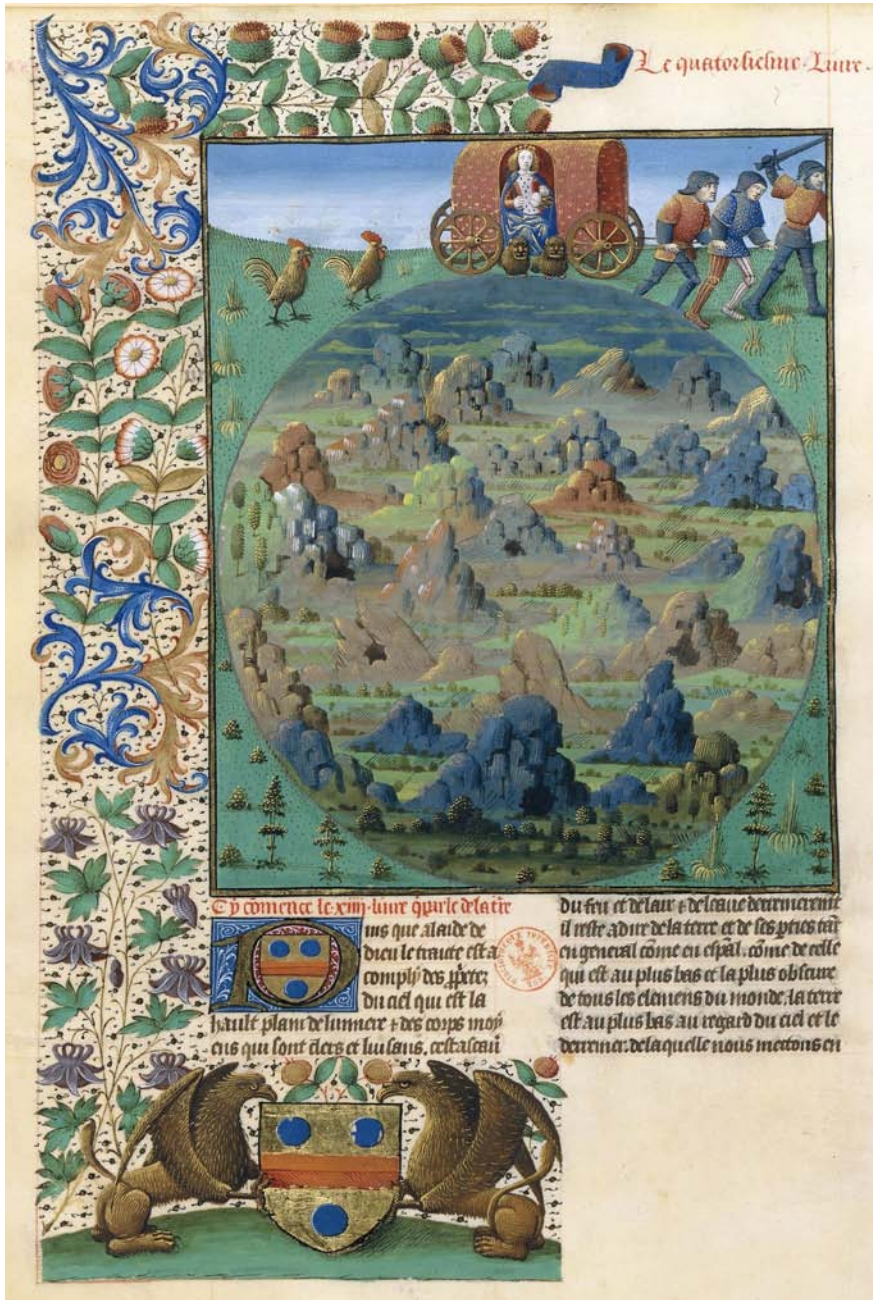 Le quatorsiesme Livre.
Cy comence le xiiij. livre q̃ parle de la tr̃e
Puis que a laide de
dieu le traitte est a
comply des p̃p̃etez
du ciel qui est la
hault plain de lumiere ⁊ des corps moy
ens qui sont clers et luisans. cest a scau
du feu et de lair ⁊ de leaue derrenierem̃t
il reste a dire de la terre et de ses p̃ties tãt
en general cõme en esp̃al. cõme de celle
qui est au plus bas et la plus obscure
de tous les elemens du monde. la terre
est au plus bas au regard du ciel et le
derrenier. de laquelle nous mettons en